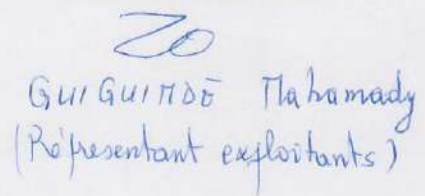 GUIGUIMDÉ Mahamady
(Réprésentant exploitants)